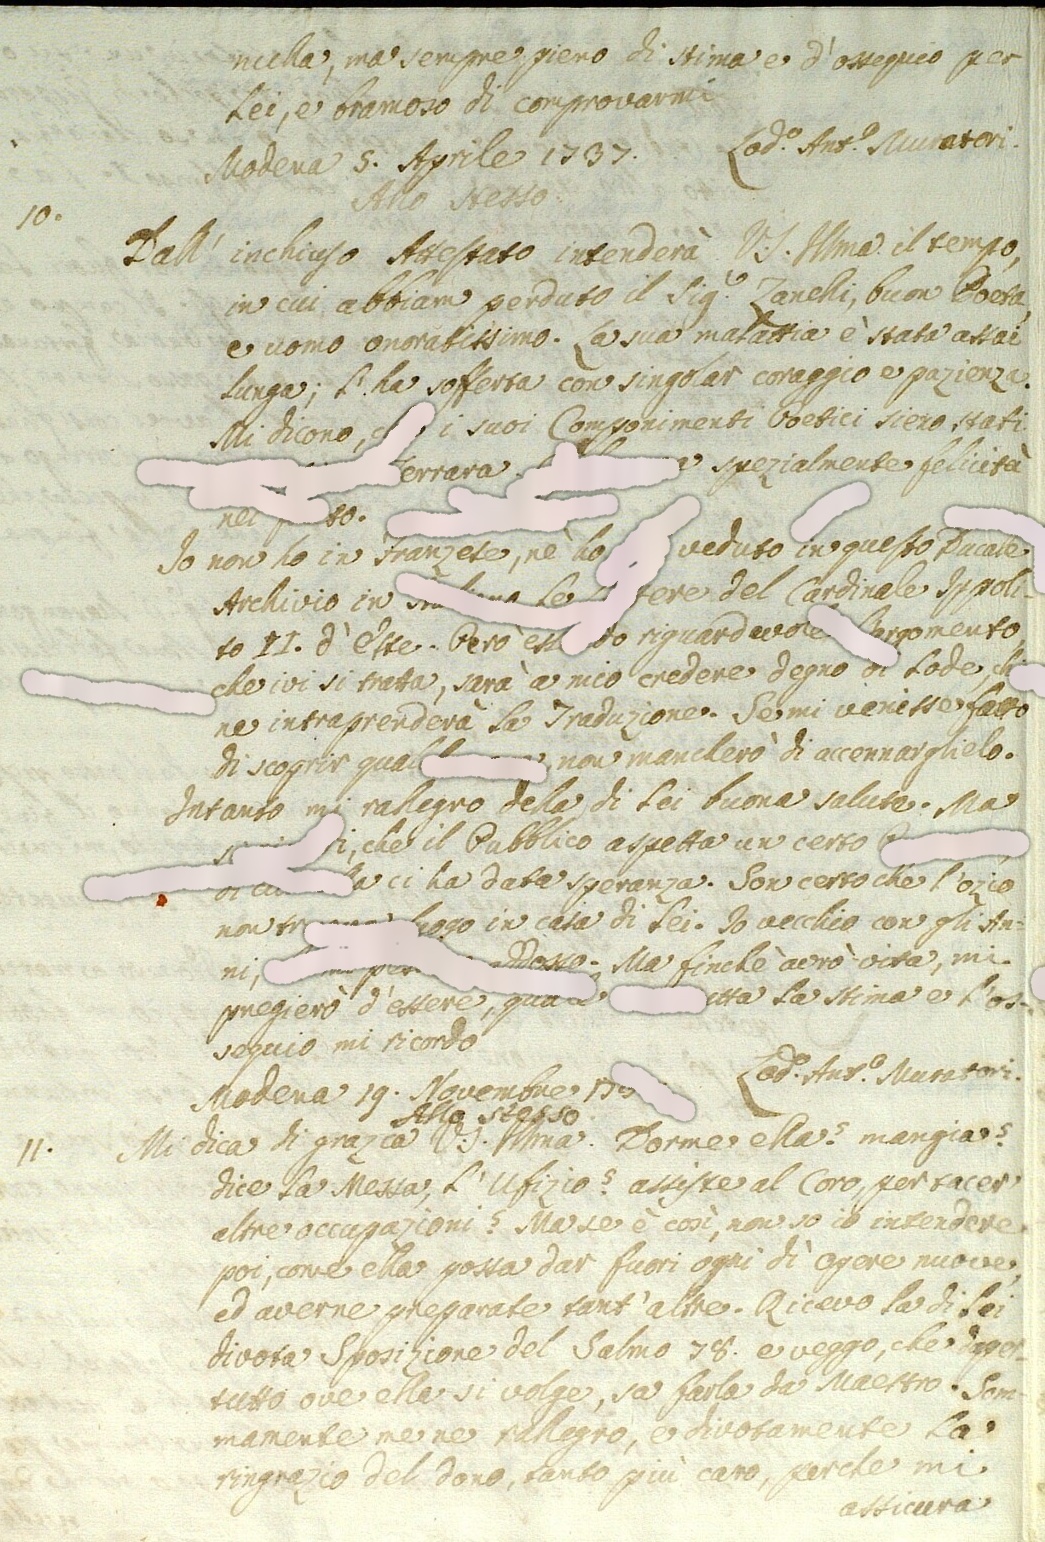 nulla, ma sempre pieno di stima e d'ossequio per
Lei, e bramoso di comprovarmi
Modena 5. Aprile 1737. Lod.º Ant.º Muratori.
Allo stesso
10.
Dall' inchiuso Attestato intenderà V.S. Illma il tempo,
in cui abbiam perduto il Sig.º Zanchi, buon Poeta,
e uomo onoratissimo. La sua malattia è stata assai
lunga; l'ha sofferta con singolar coraggio e pazienza.
Mi dicono, i suoi Componimenti Poetici sieno stati
Ferrara spezialmente felicità
nei
Io non ho in Franzese, nè ho veduto in questo Ducale
Archivio in Le del Cardinale Ippoli-
to II. d'Este. Però riguardevole l'argomento,
che ivi si tratta, sarà a mio credere degno di lode, chi
ne intraprenderà la Traduzione. Se mi venisse fatto
di scoprir non mancherò di accennarglielo.
Intanto mi rallegro della di Lei buona salute. Ma
che il Pubblico aspetta un certo
di ci ha data speranza. Son certo che l'ozio
non luogo in casa di Lei. Io vecchio con gli An-
ni, addosso; Ma finchè avrò vita, mi
pregierò d'essere, la stima e l'os-
sequio mi ricordo
Modena 19. Novembre Lod.º Ant.º Muratori.
Allo stesso
11. Mi dica di grazia V.S. Illma. Dorme ella? mangia?
dice la Messa, l'Ufizio? assiste al Coro, per tacer
altre occupazioni? Ma se è così, non so io intendere
poi, come ella possa dar fuori ogni dì opere nuove,
ed averne preparate tant'altre. Ricevo la di Lei
divota Sposizione del Salmo 78. e veggo, che dapper-
tutto ove ella si volge, sa farla da Maestro. Som-
mamente me ne rallegro, e divotamente La
ringrazio del dono, tanto più caro, perche mi
assicura